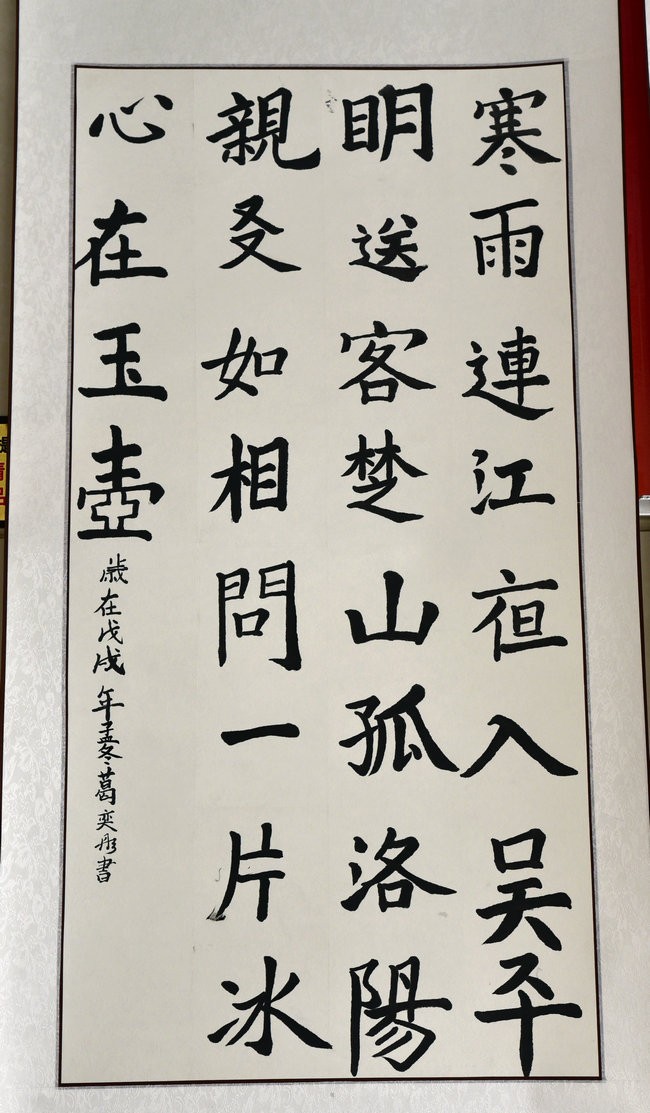 寒雨連江亱入吴平
眀送客楚山孤洛陽
親㕛如相問一片冰
心在玉壺
歲在戊戌年孟冬葛奕彤書